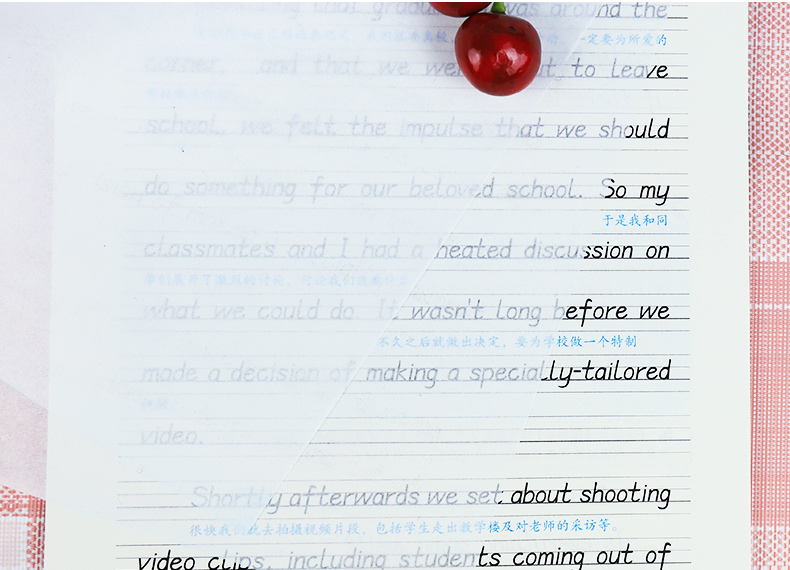 that graduation was around the
一定要为所爱的
corner, and that we were about to leave
school, we felt the impulse that we should
do something for our beloved school. So my
于是我和同
classmates and I had a heated discussion on
学们展开了激烈的讨论，讨论我们能做什么
what we could do. It wasn't long before we
不久之后就做出决定，要为学校做一个特制
made a decision of making a specially-tailored
video.
Shortly afterwards we set about shooting
很快我们就去拍摄视频片段，包括学生走出教学楼及对老师的采访等。
video clips, including students coming out of